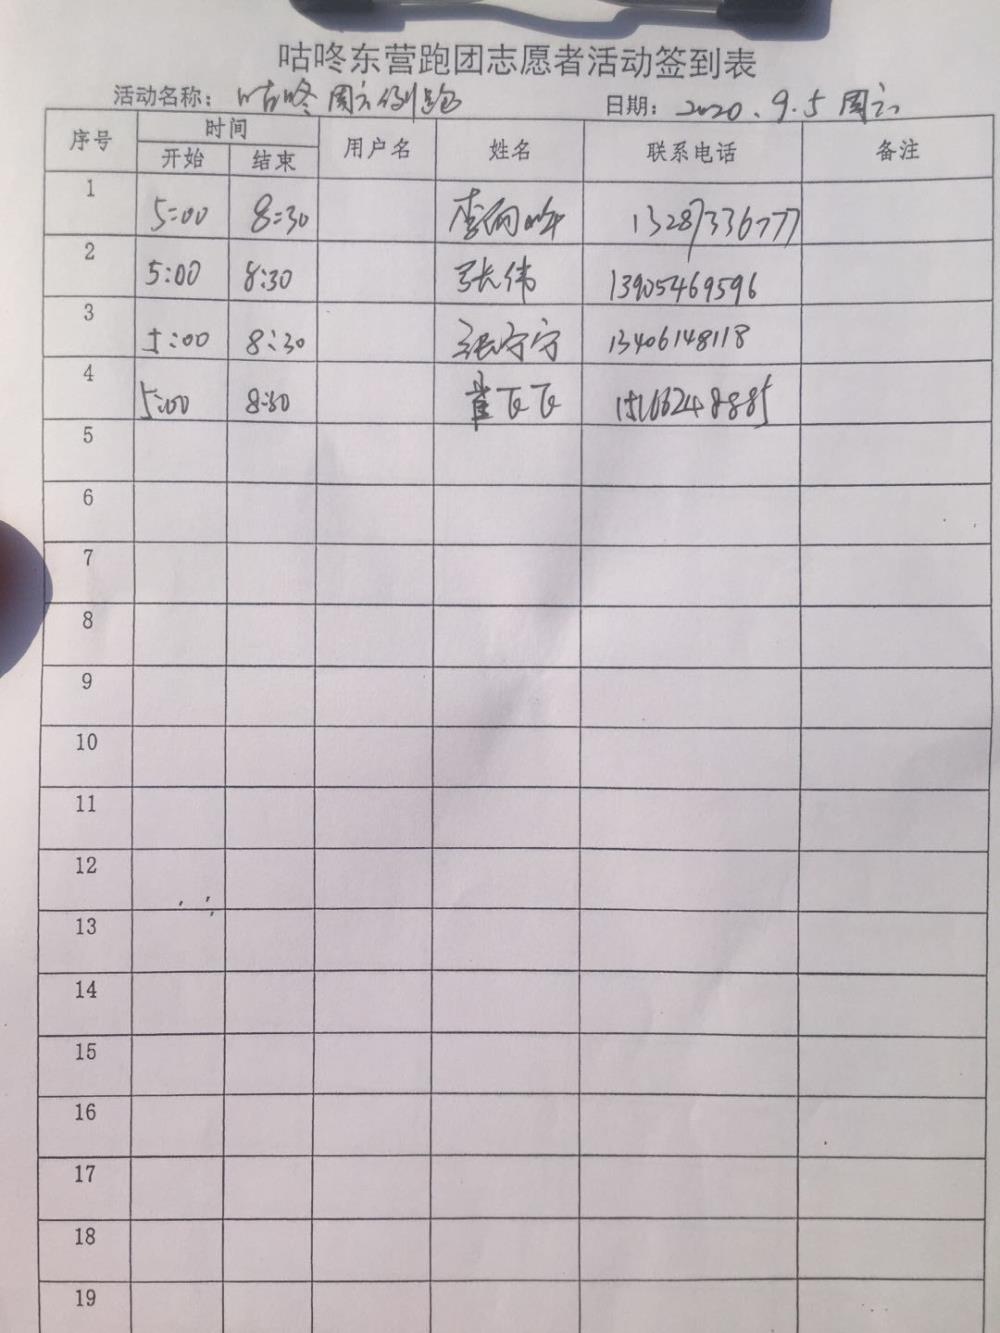 咕咚东营跑团志愿者活动签到表
活动名称：咕咚周六例跑 日期：2020.9.5 周六
序号 时间 用户名 姓名 联系电话 备注
开始 结束
1 5:00 8:30 李 13287336777
2 5:00 8:30 张伟 13905469596
3 5:00 8:30 张宁宁 13406148118
4 5:00 8:30 崔飞飞
5
6
7
8
9
10
11
12
13
14
15
16
17
18
19